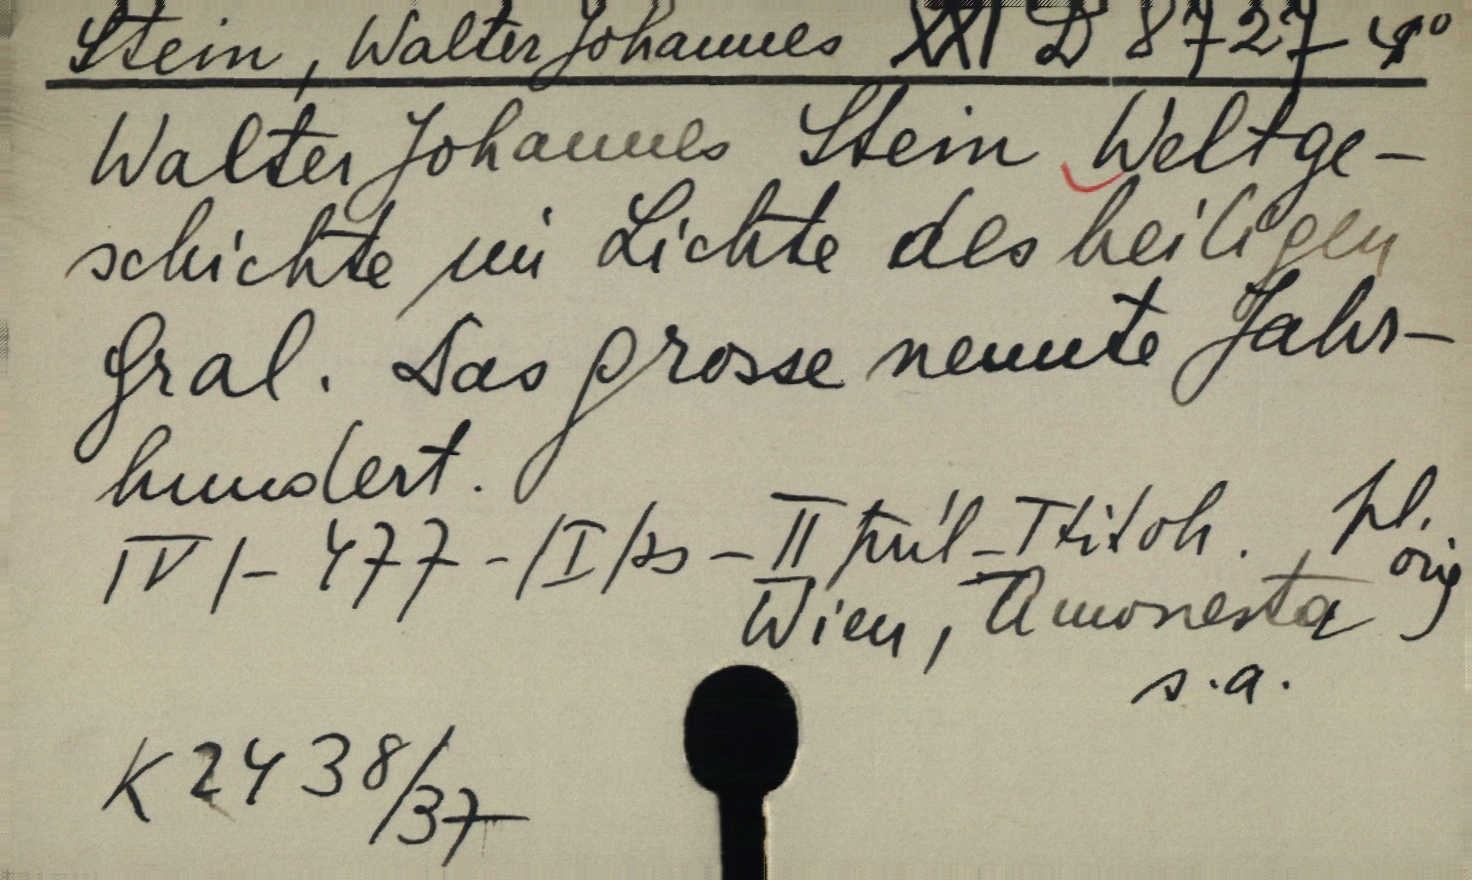 Stein, Walter Johannes XXI D 8727 4°
Walter Johannes Stein Weltge-
schichte im Lichte des heiligen
Gral. Das grosse neunte Jahr-
hundert.
IV, - 477 - /I/ s - II příl - 1 titob. pl.
orig
Wien, Amonesta
s.a.
K 2438/37